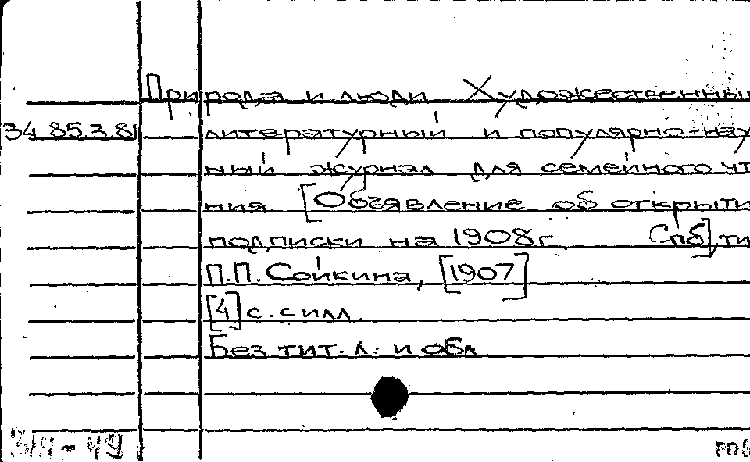 Природа и люди Художественный
34.85.3.81 литературный и популярно-нау
ный журнал для семейного чт
ния [Объявление об открыти
подписки на 1908г Спб], ти
П.П. Сойкина, [1907]
[4] с. с илл.
Без тит. л. и обл
314-49